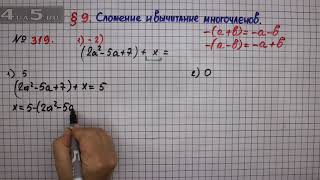 4а5.ru
§ 9. Сложение и вычитание многочленов.
№ 319.
1) - 2)
-(a+b)=-a-b
-(a-b)=-a+b
(2a²-5a+7) + x =
1) 5
2) 0
(2a²-5a+7)+ x = 5
x = 5-(2a²-5a